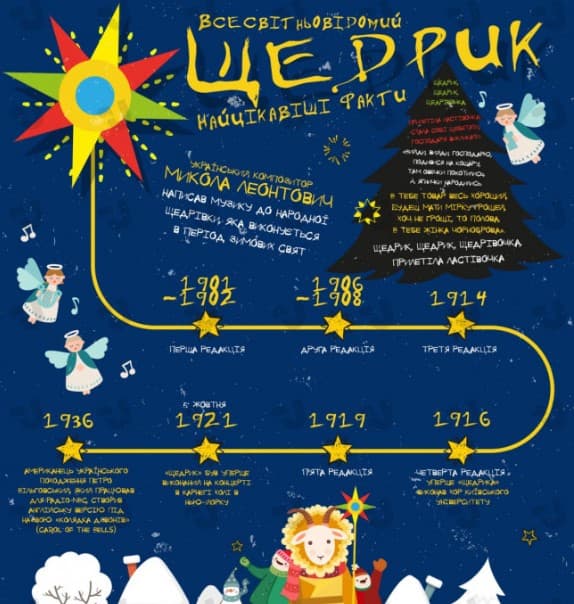 ВСЕСВІТНЬОВІДОМИЙ
ЩЕДРИК
НАЙЦІКАВІШІ ФАКТИ
УКРАЇНСЬКИЙ КОМПОЗИТОР
МИКОЛА ЛЕОНТОВИЧ
НАПИСАВ МУЗИКУ ДО НАРОДНОЇ
ЩЕДРІВКИ, ЯКА ВИКОНУЄТЬСЯ
В ПЕРІОД ЗИМОВИХ СВЯТ
ЩЕДРИК,
ЩЕДРИК,
ЩЕДРІВОЧКА
ПРИЛЕТІЛА ЛАСТІВОЧКА,
СТАЛА СОБІ ЩЕБЕТАТИ,
ГОСПОДАРЯ ВИКЛИКАТИ:
«ВИЙДИ, ВИЙДИ, ГОСПОДАРЮ,
ПОДИВИСЯ НА КОШАРУ,
ТАМ ОВЕЧКИ ПОКОТИЛИСЬ,
А ЯГНИЧКИ НАРОДИЛИСЬ.
В ТЕБЕ ТОВАР ВЕСЬ ХОРОШИЙ,
БУДЕШ МАТИ МІРКУ ГРОШЕЙ,
ХОЧ НЕ ГРОШІ, ТО ПОЛОВА,
В ТЕБЕ ЖІНКА ЧОРНОБРОВА».
ЩЕДРИК, ЩЕДРИК, ЩЕДРІВОЧКА
ПРИЛЕТІЛА ЛАСТІВОЧКА
1981
-1982
ПЕРША РЕДАКЦІЯ
1986
-1988
ДРУГА РЕДАКЦІЯ
1914
ТРЕТЯ РЕДАКЦІЯ
1936
АМЕРИКАНЕЦЬ УКРАЇНСЬКОГО
ПОХОДЖЕННЯ ПЕТРО
ВІЛЬГОВСЬКИЙ, ЯКИЙ ПРАЦЮВАВ
ДЛЯ РАДІО NBC, СТВОРИВ
АНГЛІЙСЬКУ ВЕРСІЮ ПІД
НАЗВОЮ «КОЛЯДКА ДЗВОНІВ»
(CAROL OF THE BELLS)
5 ЖОВТНЯ
1921
«ЩЕДРИК» БУВ УПЕРШЕ
ВИКОНАНИЙ НА КОНЦЕРТІ
В КАРНЕГІ ХОЛІ В
НЬЮ-ЙОРКУ
1919
П'ЯТА РЕДАКЦІЯ
1916
ЧЕТВЕРТА РЕДАКЦІЯ,
УПЕРШЕ «ЩЕДРИКА»
ВИКОНАВ ХОР КИЇВСЬКОГО
УНІВЕРСИТЕТУ